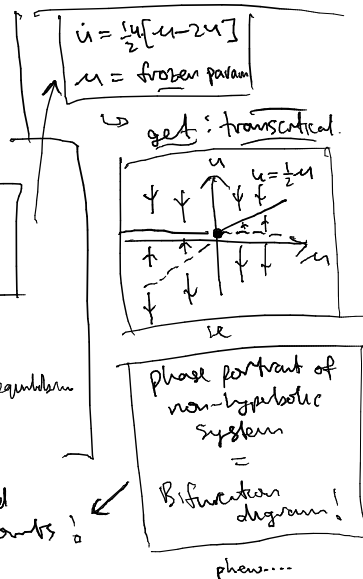 u̇ = ½u[μ-2u]
μ = frozen param
↳ get : transcritical.
u
u=½μ
μ
ie
phase portrait of
non-hyperbolic
system
=
Bifurcation
diagram!
phew....